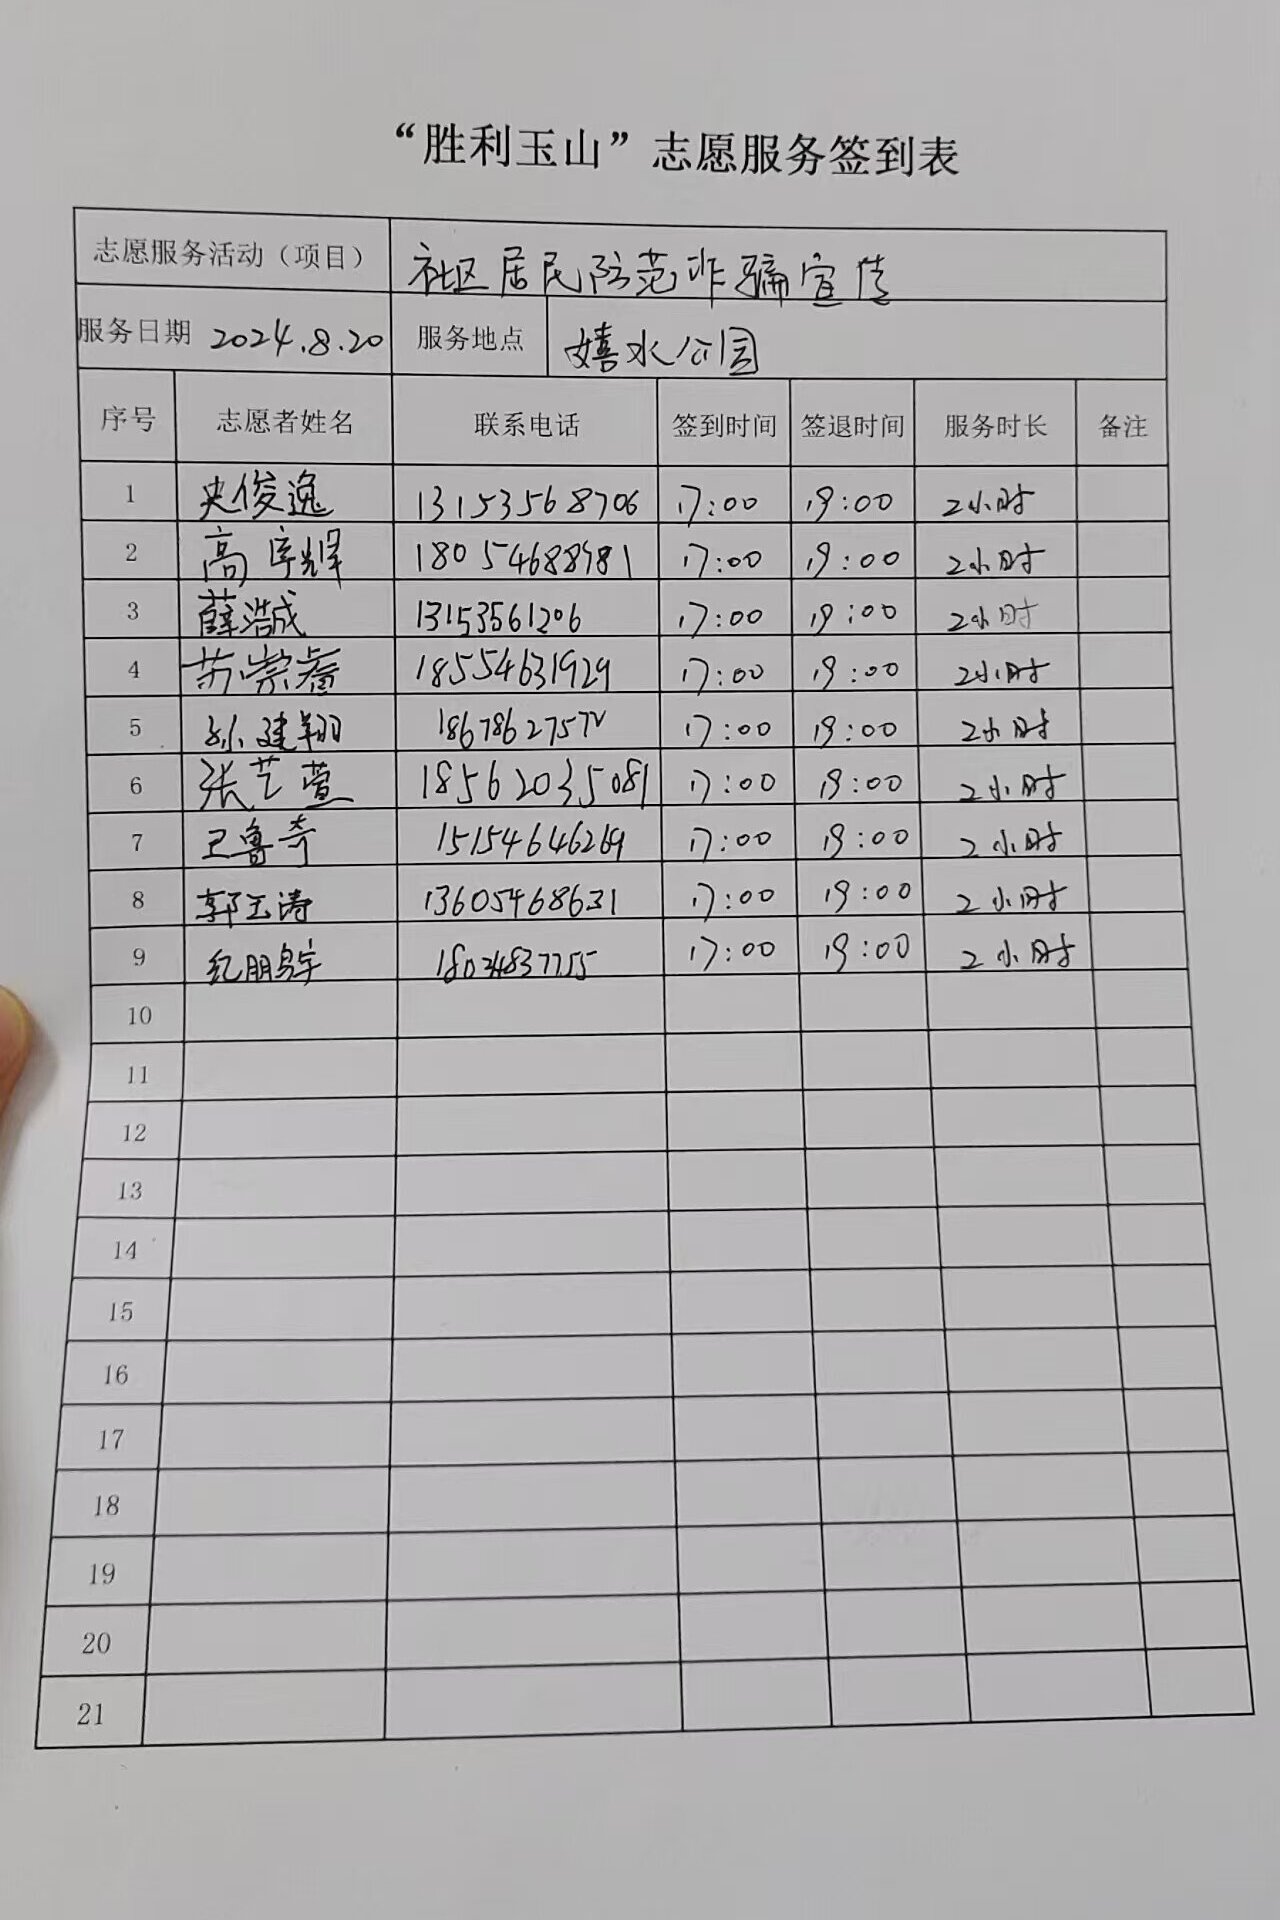 “胜利玉山”志愿服务签到表
志愿服务活动（项目） 社区居民防范诈骗宣传
服务日期 2024.8.20 服务地点 嬉水公园
序号 志愿者姓名 联系电话 签到时间 签退时间 服务时长 备注
1 史俊逸 13153568706 17:00 19:00 2小时
2 高宇辉 18054688981 17:00 19:00 2小时
3 薛浩成 13153561206 17:00 19:00 2小时
4 18554631929 17:00 19:00 2小时
5 孙建翔 17:00 19:00 2小时
6 张艺萱 18562035081 17:00 19:00 2小时
7 王鲁奇 15154646269 17:00 19:00 2小时
8 郭玉涛 13605468631 17:00 19:00 2小时
9 17:00 19:00 2小时
10
11
12
13
14
15
16
17
18
19
20
21